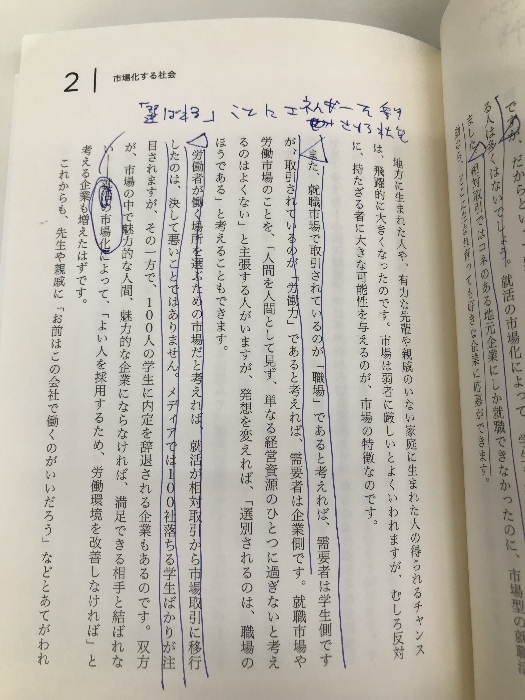 2
市場化する社会
地方に生まれた人や、有力な先輩や親戚のいない家庭に生まれた人の得られるチャンス
は、飛躍的に大きくなったのです。市場は弱者に厳しいとよくいわれますが、むしろ反対
に、持たざる者に大きな可能性を与えるのが、市場の特徴なのです。
また、就職市場で取引されているのが「職場」であると考えれば、需要者は学生側です
が、取引されているのが「労働力」であると考えれば、需要者は企業側です。就職市場や
労働市場のことを、「人間を人間として見ず、単なる経営資源のひとつに過ぎないと考え
るのはよくない」と主張する人がいますが、発想を変えれば、「選別されるのは、職場の
ほうである」と考えることもできます。
労働者が働く場所を選ぶための市場だと考えれば、就活が相対取引から市場取引に移行
したのは、決して悪いことではありません。メディアでは100社落ちる学生ばかりが注
目されますが、その一方で、100人の学生に内定を辞退される企業もあるのです。双方
が、市場の中で魅力的な人間、魅力的な企業にならなければ、満足できる相手と結ばれな
い――就活の市場化によって、「よい人を採用するため、労働環境を改善しなければ」と
考える企業も増えたはずです。
これからも、先生や親戚に「お前はこの会社で働くのがいいだろう」などとあてがわれ
ですが、だからといっ
る人は多くはないでしょう。就活の市場
相対取引ではコネのある地元企業にしか就職できなかったのに、市場型の就職
好きな企業に応募ができます。